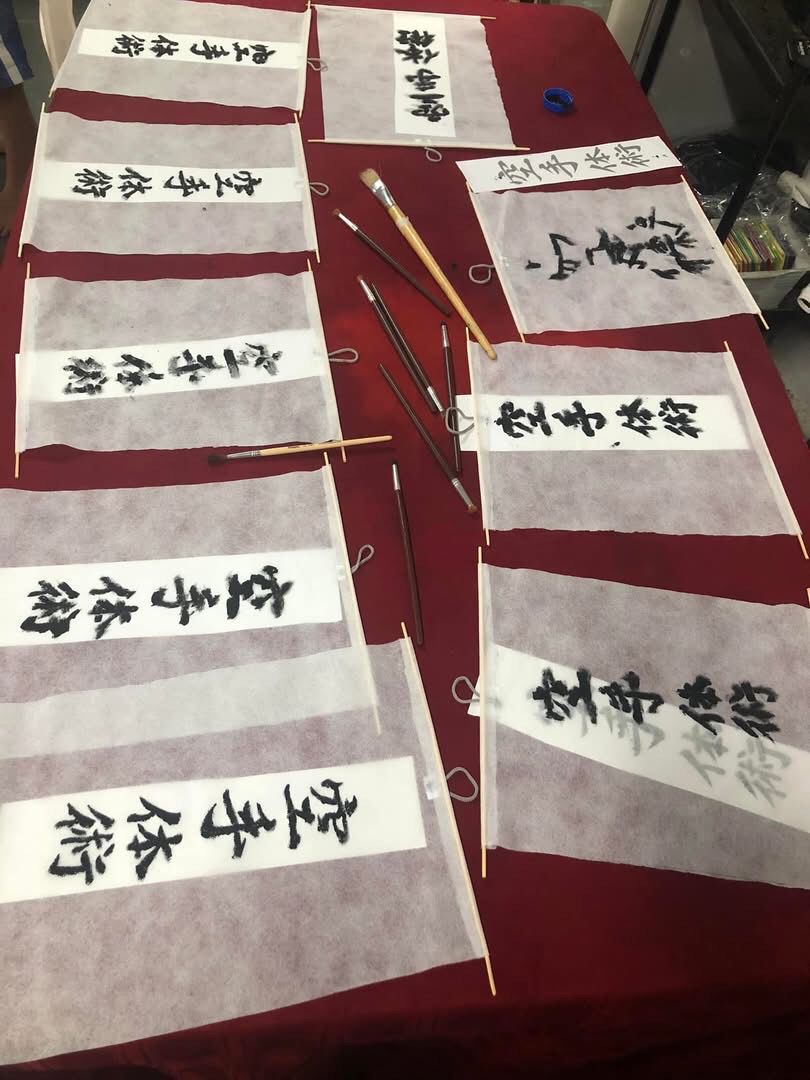 空手体術
空手体術
空手体術
空手体術
空手体術
空手体術
空手体術
空手体術
空手体術
手体術